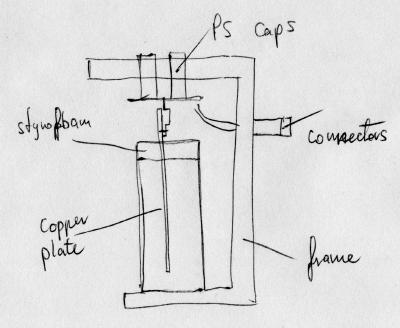 PS caps
styrofoam
connectors
copper
plate
frame